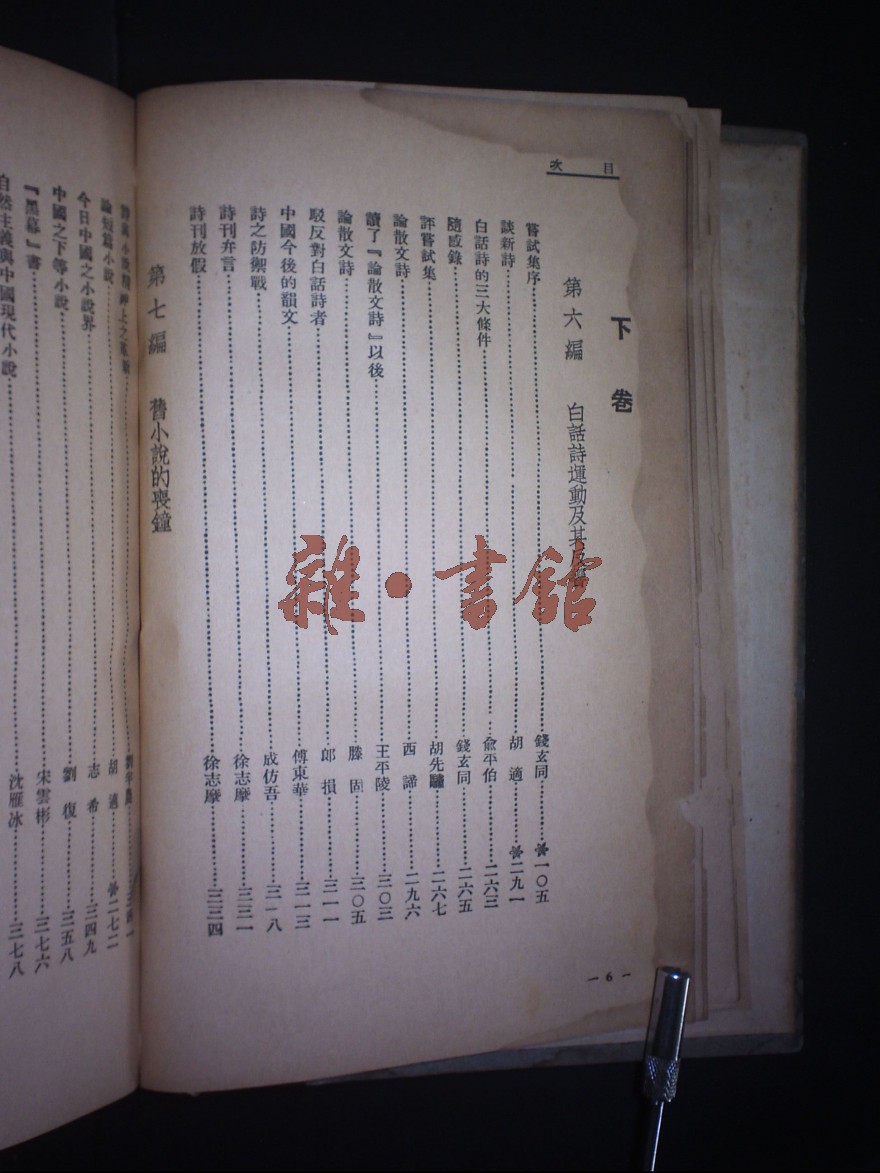 目次
下卷
第六編 白話詩運動及其
嘗試集序……錢玄同……※一〇五
談新詩……胡適……※二九一
白話詩的三大條件……俞平伯……二六三
隨感錄……錢玄同……二六五
評嘗試集……胡先驌……二六七
論散文詩……西諦……二九六
讀了『論散文詩』以後……王平陵……三〇三
論散文詩……滕固……三〇五
駁反對白話詩者……郎損……三一一
中國今後的韻文……傅東華……三一三
詩之防禦戰……成仿吾……三一八
詩刊弁言……徐志摩……三三一
詩刊放假……徐志摩……三三四
第七編 舊小說的喪鐘
詩與小說精神上之革新……劉半農
論短篇小說……胡適……※二七二
今日中國之小說界……志希……三四九
中國之下等小說……劉復……三五八
『黑幕』書……宋雲彬……三七六
自然主義與中國現代小說……沈雁冰……三七八
— 6 —
雜·書館